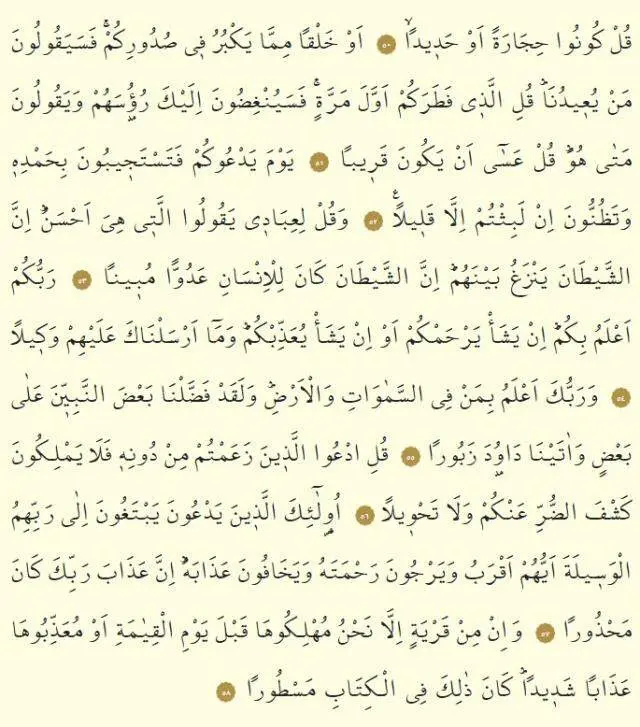 قُلْ كُونُوا حِجَارَةً اَوْ حَد۪يداًۙ ﴿٥٠﴾ اَوْ خَلْقاً مِمَّا يَكْبُرُ ف۪ي صُدُورِكُمْۚ فَسَيَقُولُونَ
مَنْ يُع۪يدُنَاۜ قُلِ الَّذ۪ي فَطَرَكُمْ اَوَّلَ مَرَّةٍۚ فَسَيُنْغِضُونَ اِلَيْكَ رُؤُ۫سَهُمْ وَيَقُولُونَ
مَتٰى هُوَۜ قُلْ عَسٰٓى اَنْ يَكُونَ قَر۪يباً ﴿٥١﴾ يَوْمَ يَدْعُوكُمْ فَتَسْتَج۪يبُونَ بِحَمْدِه۪
وَتَظُنُّونَ اِنْ لَبِثْتُمْ اِلَّا قَل۪يلاً۟ ﴿٥٢﴾ وَقُلْ لِعِبَاد۪ي يَقُولُوا الَّت۪ي هِيَ اَحْسَنُۜ اِنَّ
الشَّيْطَانَ يَنْزَغُ بَيْنَهُمْۜ اِنَّ الشَّيْطَانَ كَانَ لِلْاِنْسَانِ عَدُواًّ مُب۪يناً ﴿٥٣﴾ رَبُّكُمْ
اَعْلَمُ بِكُمْۜ اِنْ يَشَأْ يَرْحَمْكُمْ اَوْ اِنْ يَشَأْ يُعَذِّبْكُمْۜ وَمَٓا اَرْسَلْنَاكَ عَلَيْهِمْ وَك۪يلاً
﴿٥٤﴾ وَرَبُّكَ اَعْلَمُ بِمَنْ فِي السَّمٰوَاتِ وَالْاَرْضِۜ وَلَقَدْ فَضَّلْنَا بَعْضَ النَّبِيّ۪نَ عَلٰى
بَعْضٍ وَاٰتَيْنَا دَاوُ۫دَ زَبُوراً ﴿٥٥﴾ قُلِ ادْعُوا الَّذ۪ينَ زَعَمْتُمْ مِنْ دُونِه۪ فَلَا يَمْلِكُونَ
كَشْفَ الضُّرِّ عَنْكُمْ وَلَا تَحْو۪يلاً ﴿٥٦﴾ اُو۬لٰٓئِكَ الَّذ۪ينَ يَدْعُونَ يَبْتَغُونَ اِلٰى رَبِّهِمُ
الْوَس۪يلَةَ اَيُّهُمْ اَقْرَبُ وَيَرْجُونَ رَحْمَتَهُ وَيَخَافُونَ عَذَابَهُۜ اِنَّ عَذَابَ رَبِّكَ كَانَ
مَحْذُوراً ﴿٥٧﴾ وَاِنْ مِنْ قَرْيَةٍ اِلَّا نَحْنُ مُهْلِكُوهَا قَبْلَ يَوْمِ الْقِيٰمَةِ اَوْ مُعَذِّبُوهَا
عَذَاباً شَد۪يداًۜ كَانَ ذٰلِكَ فِي الْكِتَابِ مَسْطُوراً ﴿٥٨﴾